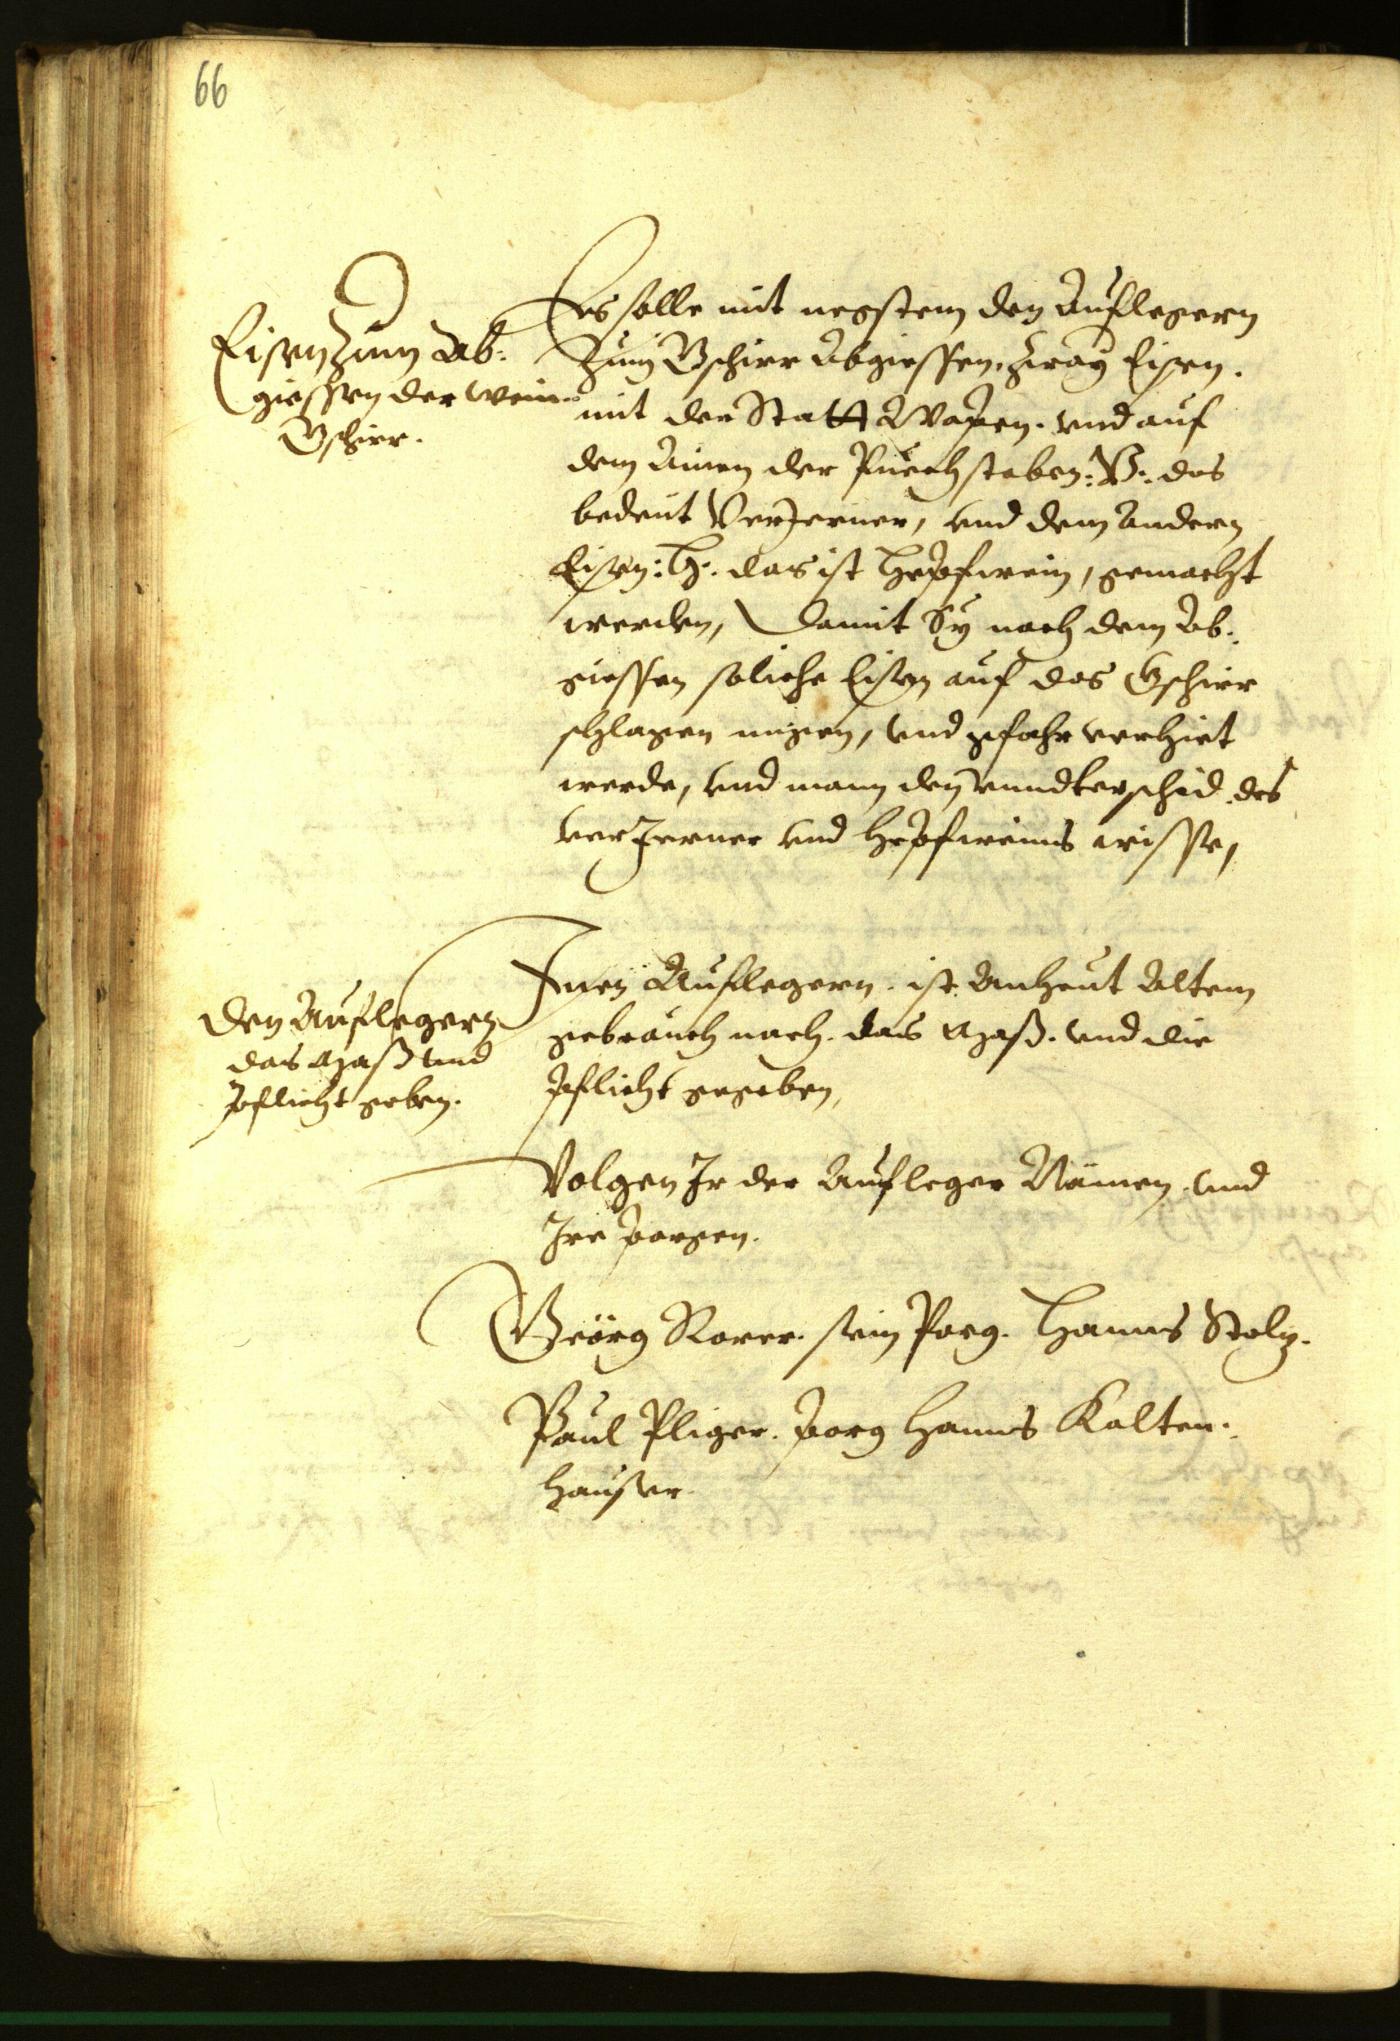 66
Eisen zum Ab:
giessen der Wein
Gschirr.
Es solle mit negstem den Auflegern
Zum Gschirr Abgiessen, zway Eisen.
mit der Statt Wapen. vnd auf
dem Ainen der Puechstaben: V: das
bedeut Verjerner, vnd dem Andern
Eisen: H: das ist Hepfwein, gemacht
werden, Damit Sy nach dem Ab:
giessen soliche Eisen auf das Gschirr
schlagen mögen, vnd gefahr verhiet
werde, vnd mann den vnndterschid des
verJerner vnd Hepfweins wisse,
Den Auflegern
das Maß vnd
Pflicht geben.
Inen Auflegern. ist Anheut Altem
gebrauch nach. das Maß. vnd die
Pflicht gegeben,
Volgen Ir der Aufleger Namen vnd
Ire Porgen.
Georg Rorer. sein Porg. Hanns Stolz.
Paul Pliger. Porg Hanns Kalten:
hauser